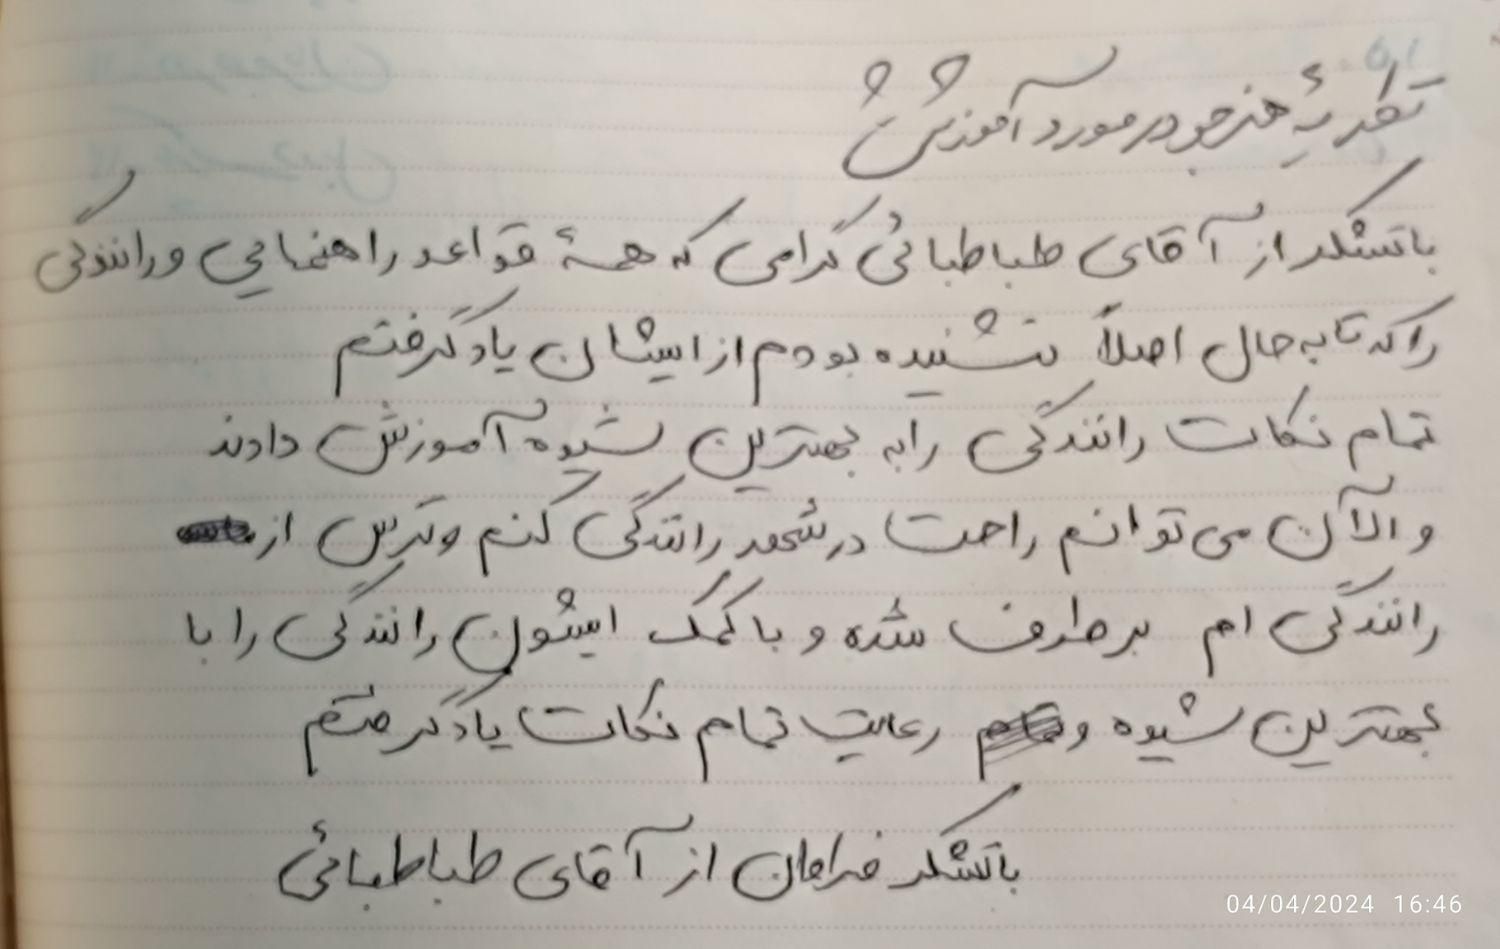 نظریهٔ هنرجو در مورد آموزش
با تشکر از آقای طباطبائی گرامی که همهٔ قواعد راهنمایی و رانندگی
را که تا به حال اصلاً نشنیده بودم از ایشان یاد گرفتم
تمام نکات رانندگی را به بهترین شیوه آموزش دادند
و الآن می‌توانم راحت در شهر رانندگی کنم و ترس از
رانندگی ام برطرف شده و با کمک ایشون رانندگی را با
بهترین شیوه و رعایت تمام نکات یاد گرفتم
با تشکر فراوان از آقای طباطبائی
04/04/2024 16:46